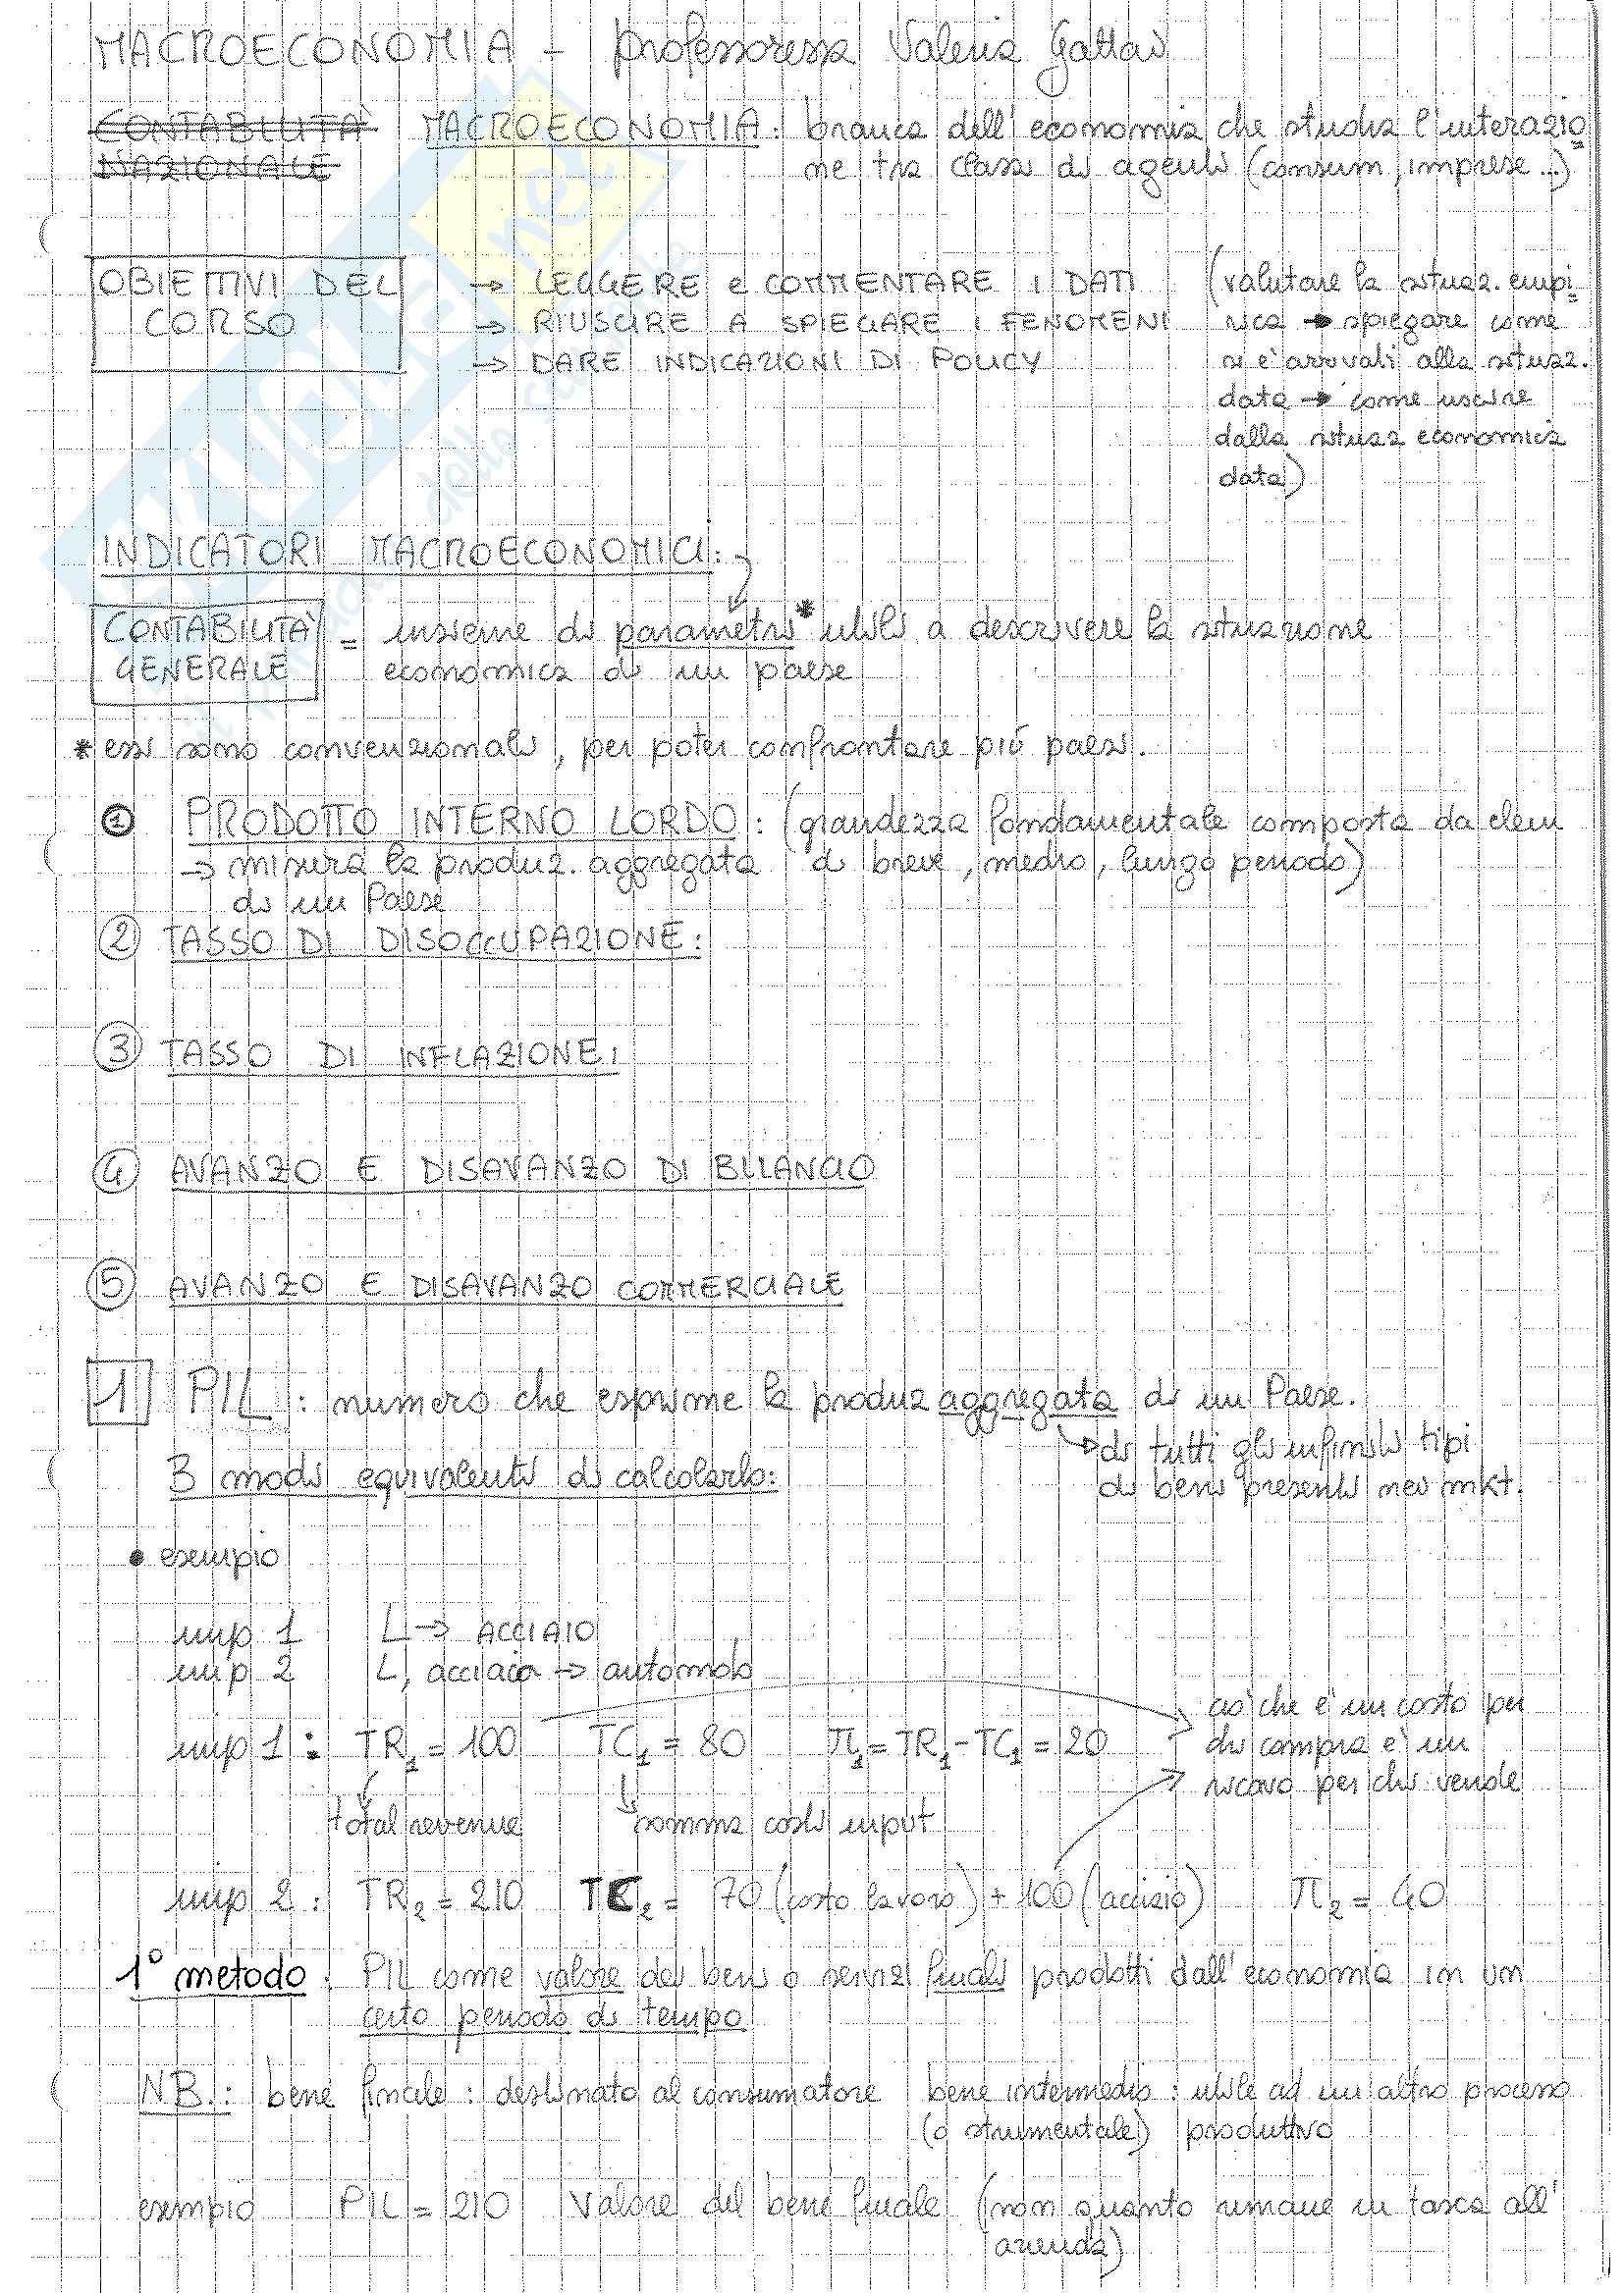 MACROECONOMIA - professoressa Valeria Gattai
CONTABILITÀ NAZIONALE MACROECONOMIA: branca dell'economia che studia l'interazio
ne tra classi di agenti (consum, imprese ...)
OBIETTIVI DEL CORSO
→ LEGGERE e COMMENTARE I DATI
→ RIUSCIRE A SPIEGARE I FENOMENI
→ DARE INDICAZIONI DI POLICY
(valutare la situaz. empi
rica → spiegare come
si è arrivati alla situaz.
data → come uscire
dalla situaz economica
data)
INDICATORI MACROECONOMICI:
CONTABILITÀ GENERALE = insieme di parametri* utili a descrivere la situazione
economica di un paese
* essi sono convenzionali, per poter confrontare più paesi.
① PRODOTTO INTERNO LORDO: (grandezza fondamentale composta da elem
→ misura la produz. aggregata di breve, medio, lungo periodo)
di un Paese
② TASSO DI DISOCCUPAZIONE:
③ TASSO DI INFLAZIONE:
④ AVANZO E DISAVANZO DI BILANCIO
⑤ AVANZO E DISAVANZO COMMERCIALE
1 PIL: numero che esprime la produz aggregata di un Paese.
→ di tutti gli infiniti tipi
di beni presenti nei mkt.
3 modi equivalenti di calcolarlo:
• esempio
imp 1 L → ACCIAIO
imp 2 L, acciaio → automob
imp 1: TR₁ = 100 TC₁ = 80 π₁ = TR₁ - TC₁ = 20
ciò che è un costo per
chi compra è un
ricavo per chi vende
total revenue somma costi input
imp 2: TR₂ = 210 TC₂ = 70 (costo lavoro) + 100 (acciaio) π₂ = 40
1° metodo: PIL come valore dei beni o servizi finali prodotti dall'economia in un
certo periodo di tempo
NB.: bene finale: destinato al consumatore bene intermedio: utile ad un altro processo
(o strumentale) produttivo
esempio PIL = 210 Valore del bene finale (non quanto rimane in tasca all'
azienda)